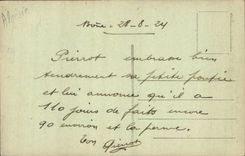 Algérie
Bône - 28-8-24
Pierrot embrasse bien
tendrement sa petite
et lui annonce qu'il a
110 jours de faits encore
90 environ et la perme.
ton Pierrot